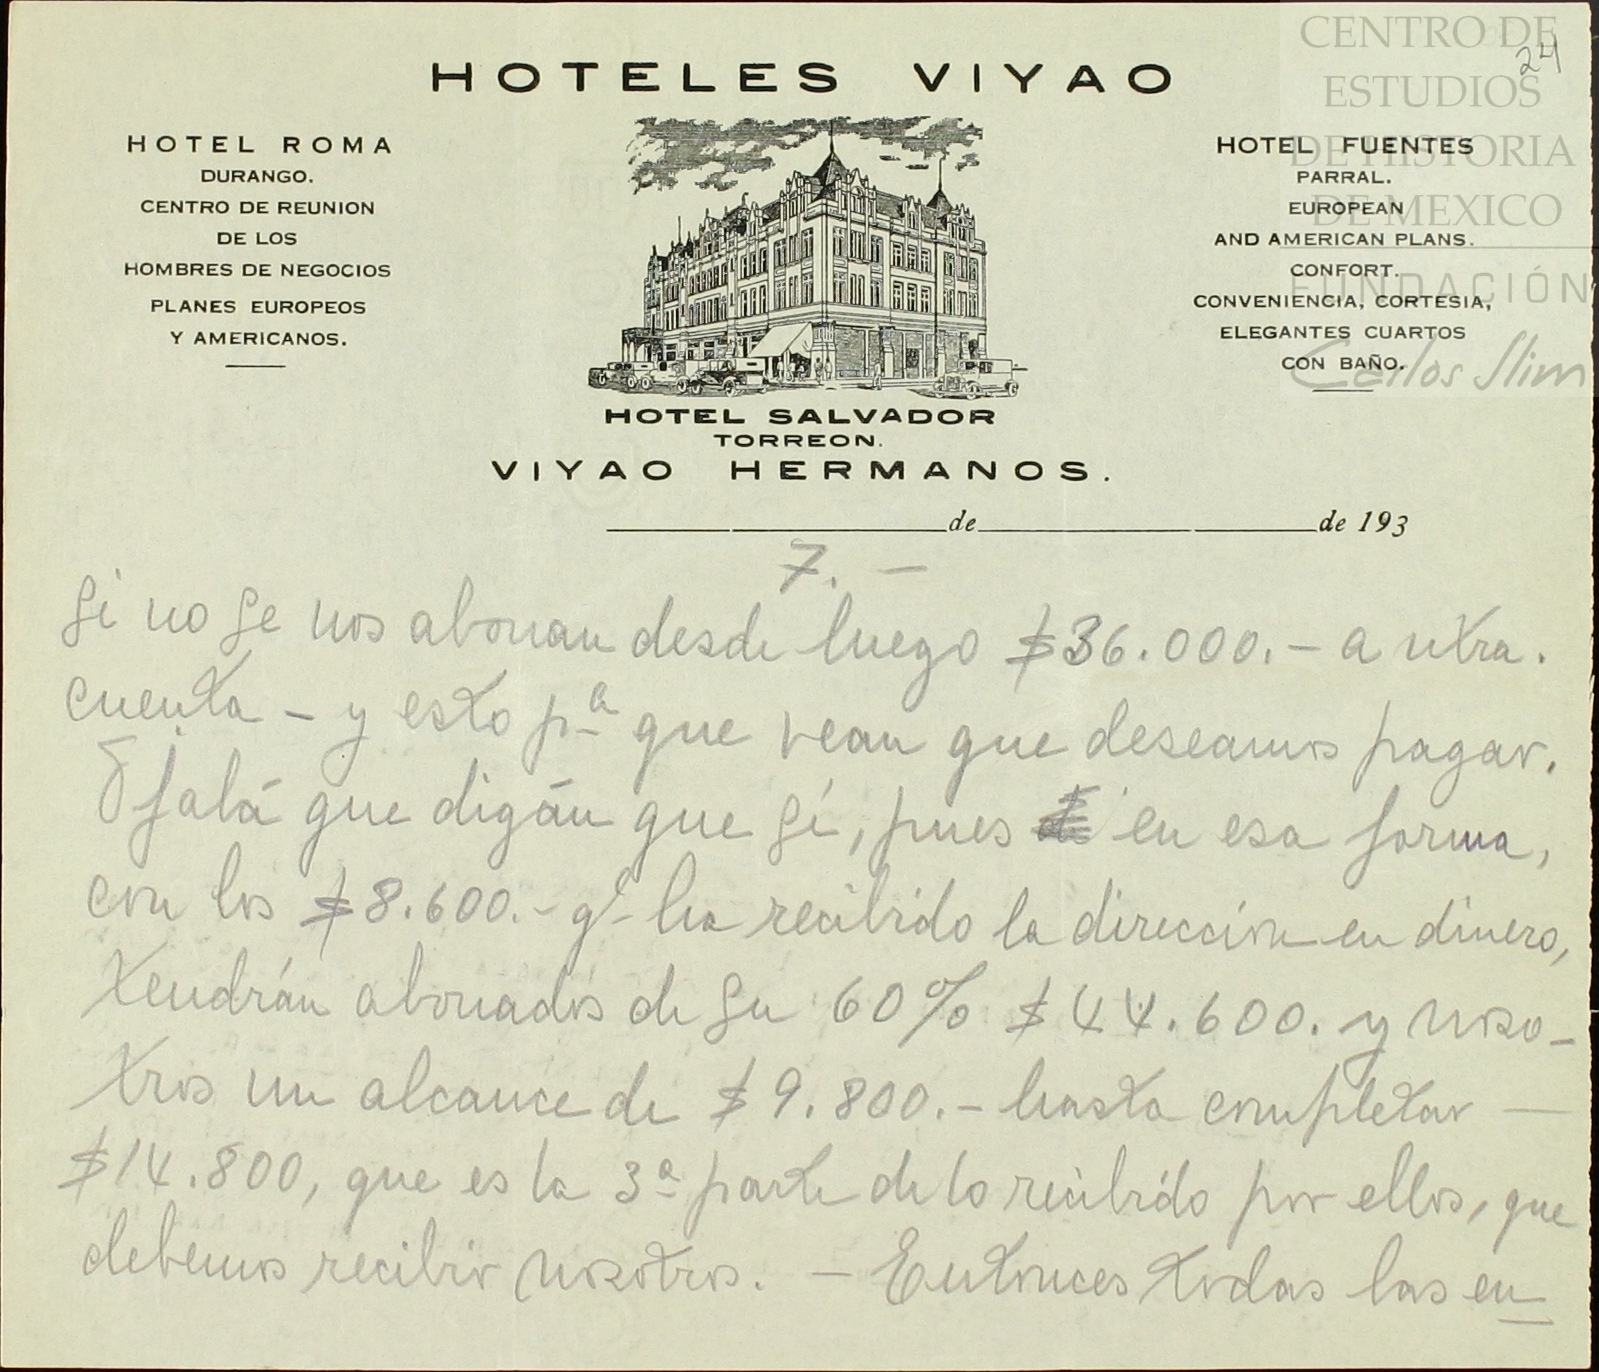 CENTRO DE
ESTUDIOS
DE HISTORIA
DE MEXICO
FUNDACIÓN
Carlos Slim
24
HOTELES VIYAO
HOTEL ROMA
DURANGO.
CENTRO DE REUNION
DE LOS
HOMBRES DE NEGOCIOS
PLANES EUROPEOS
Y AMERICANOS.
HOTEL FUENTES
PARRAL.
EUROPEAN
AND AMERICAN PLANS.
CONFORT.
CONVENIENCIA, CORTESIA,
ELEGANTES CUARTOS
CON BAÑO.
HOTEL SALVADOR
TORREON.
VIYAO HERMANOS.
de de 193
7. —
si no se nos abonan desde luego $36.000.- a ntra.
cuenta - y esto pª que vean que deseamos pagar.
Ojalá que digán que sí, pues en esa forma,
con los $8.600.- q' ha recibido la dirección en dinero,
tendrán abonados de su 60% $44.600. y noso-
tros un alcance de $9.800.- hasta completar —
$14.800, que es la 3ª parte de lo recibido por ellos, que
debemos recibir nosotros. — Entonces todas las en